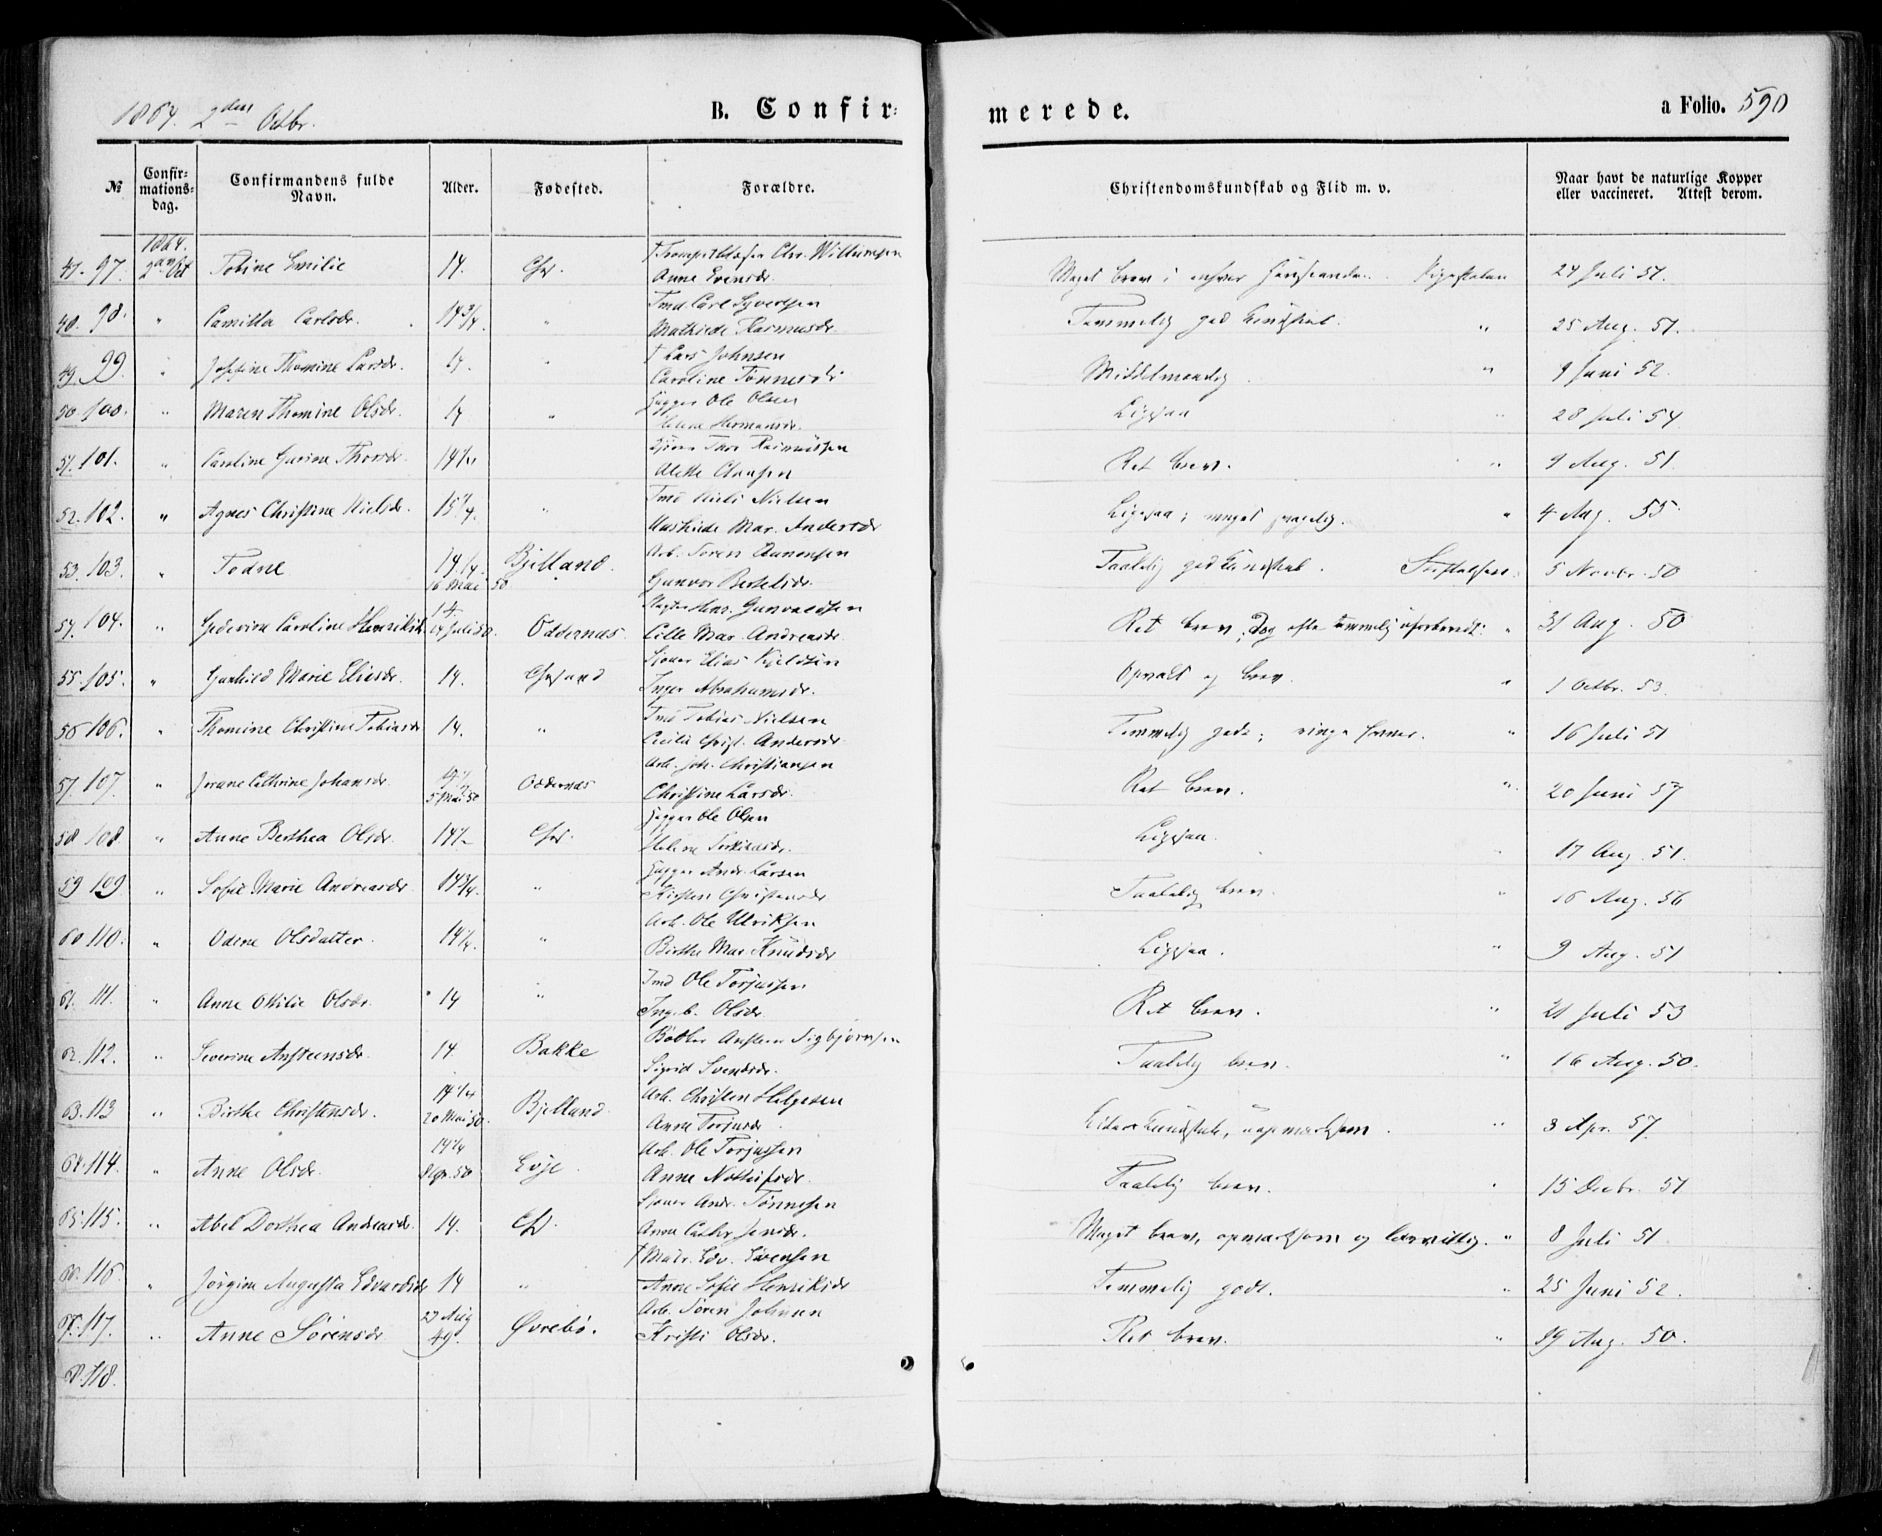 1864. 2den Octbr.
B. Confir-
merede.
a Folio. 590
№
Confir-
mations-
dag.
Confirmandens fulde
Navn.
Alder.
Fødested.
Forældre.
Christendomskundskab og Flid m. v.
Naar havt de naturlige Kopper
eller vaccineret. Attest derom.
1864.
47. 97. 2den Oct Tobine Emilie 14. Chr. † Chr. Willumsen
Anne Evensdr. Meget brav i enhver 24 Juli 51.
48. 98. " Camilla Carlsdr. 14 3/4. " Tmd Carl Syvertsen
Mathilde Rasmusdr. Temmelig god Kundskab. " 25 Aug. 51.
49. 99. " Josefine Thomine Larsdr. 14. " † Lars Johnsen
Caroline Tønnesdr. Middelmaadig " 9 Juni 52.
50. 100. " Maren Thomine Olsdr. 14 " Ole Olsen
Helene Hermansdr. Ligesaa " 28 Juli 54
51. 101. " Caroline Gurine Thorsdr. 14 1/2 Thor Rasmussen
Alette Clausen Ret brav. " 9 Aug. 51.
52. 102. " Agnes Christine Nielsdr. 15 1/4. " Tmd Niels Nielsen
Mathilde Mar. Andersdr Ligesaa; meget " 4 Aug. 55
53. 103. " Todne 14 1/4. Bjelland. Arb. Søren Aanensen
16 Mai 50 Gunvor Bertelsdr. Taalelig god Kundskab. 5 Novbr. 50
54. 104. " Caroline Henriksdr. 14. Oddernæs. Henr. Gunvaldsen
14 Juli 50. Lille Mar. Andreasdr. Ret brav, Dog ofte temmelig uforberedt. " 31 Aug. 50
55. 105. " Gunhild Marie Eliasdr. 14. Chrsand Elias Kjeldsen
Inger Abrahamsdr. Opvakt og brav. " 1 Octbr. 53.
56 106. " Thomine Christine Tobiasdr 14. " Tmd Tobias Nielsen
Cecilia Christ. Andersdr. Temmelig gode; ringe Evner. " 16 Juli 51
57. 107. " Cathrine Johansdr. 14 1/2 Oddernæs Arb. Joh. Christiansen
5 Mai 50 Christine Larsdr. Ret brav. " 20 Juni 57
58 108 " Anne Berthea Olsdr. 14 1/2 Chr. Ole Olsen
Helene Ligesaa. 17 Aug. 51.
59 109 " Sofie Marie Andreasdr. 14 3/4. " Andr. Larsen
Kirsten Christensdr Taalelig brav. " 16 Aug. 56
60 110. " Odine Olsdatter. 14 1/4. " Arb. Ole Ulriksen
Birthe Mar. Knudsdr Ligesaa. " 9 Aug. 51
61. 111. " Anne Otilie Olsdr. 14 " Tmd Ole Torjussen
Ingeb. Olsdr. Ret brav. " 21 Juli 53
62. 112. " Severine Anfteensdr. 14. Bakke Bødker Anfteen Sigbjørnsen
Sigrid Svendsdr. Taalelig brav. " 16 Aug. 50.
63. 113 " Birthe Christensdr. 14 1/4 Bjelland. Arb. Christen Helgesen
20 Mai 50. Anne Torjusdr. Liden Kundskab, uopmærksom. " 3 Apr. 57.
64. 114. " Anne Olsdr. 14 1/4 Evje. Arb. Ole Torjussen
Anne Nottolfsdr. Taalelig brav. " 15 Decbr. 51
65. 115. " Abel Dorthea Andreasdr. 14. Chr. Andr. Tønnesen
Anne Cathr. Jensdr. Meget brav, opmærksom og lærvillig. " 8 Juli 51
66. 116. " Jørgine Augusta Edvardsdr 14 " † Matr. Edv. Sørensen
Anne Sofie Henriksdr Temmelig godt. " 25 Juni 52.
67. 117. " Anne Sørensdr 27 Aug 49. Øvrebø. Arb. Søren Johnsen
Kristi Olsdr. Ret brav. " 19 Aug. 50.
68. 118.